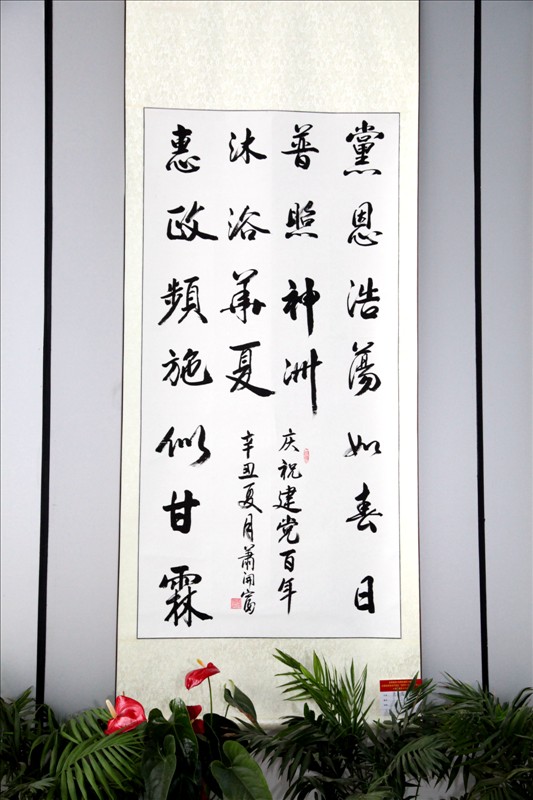 黨恩浩蕩如春日
普照神洲
惠政頻施似甘霖
沐浴華夏
庆祝建党百年
辛丑夏月蕭開富